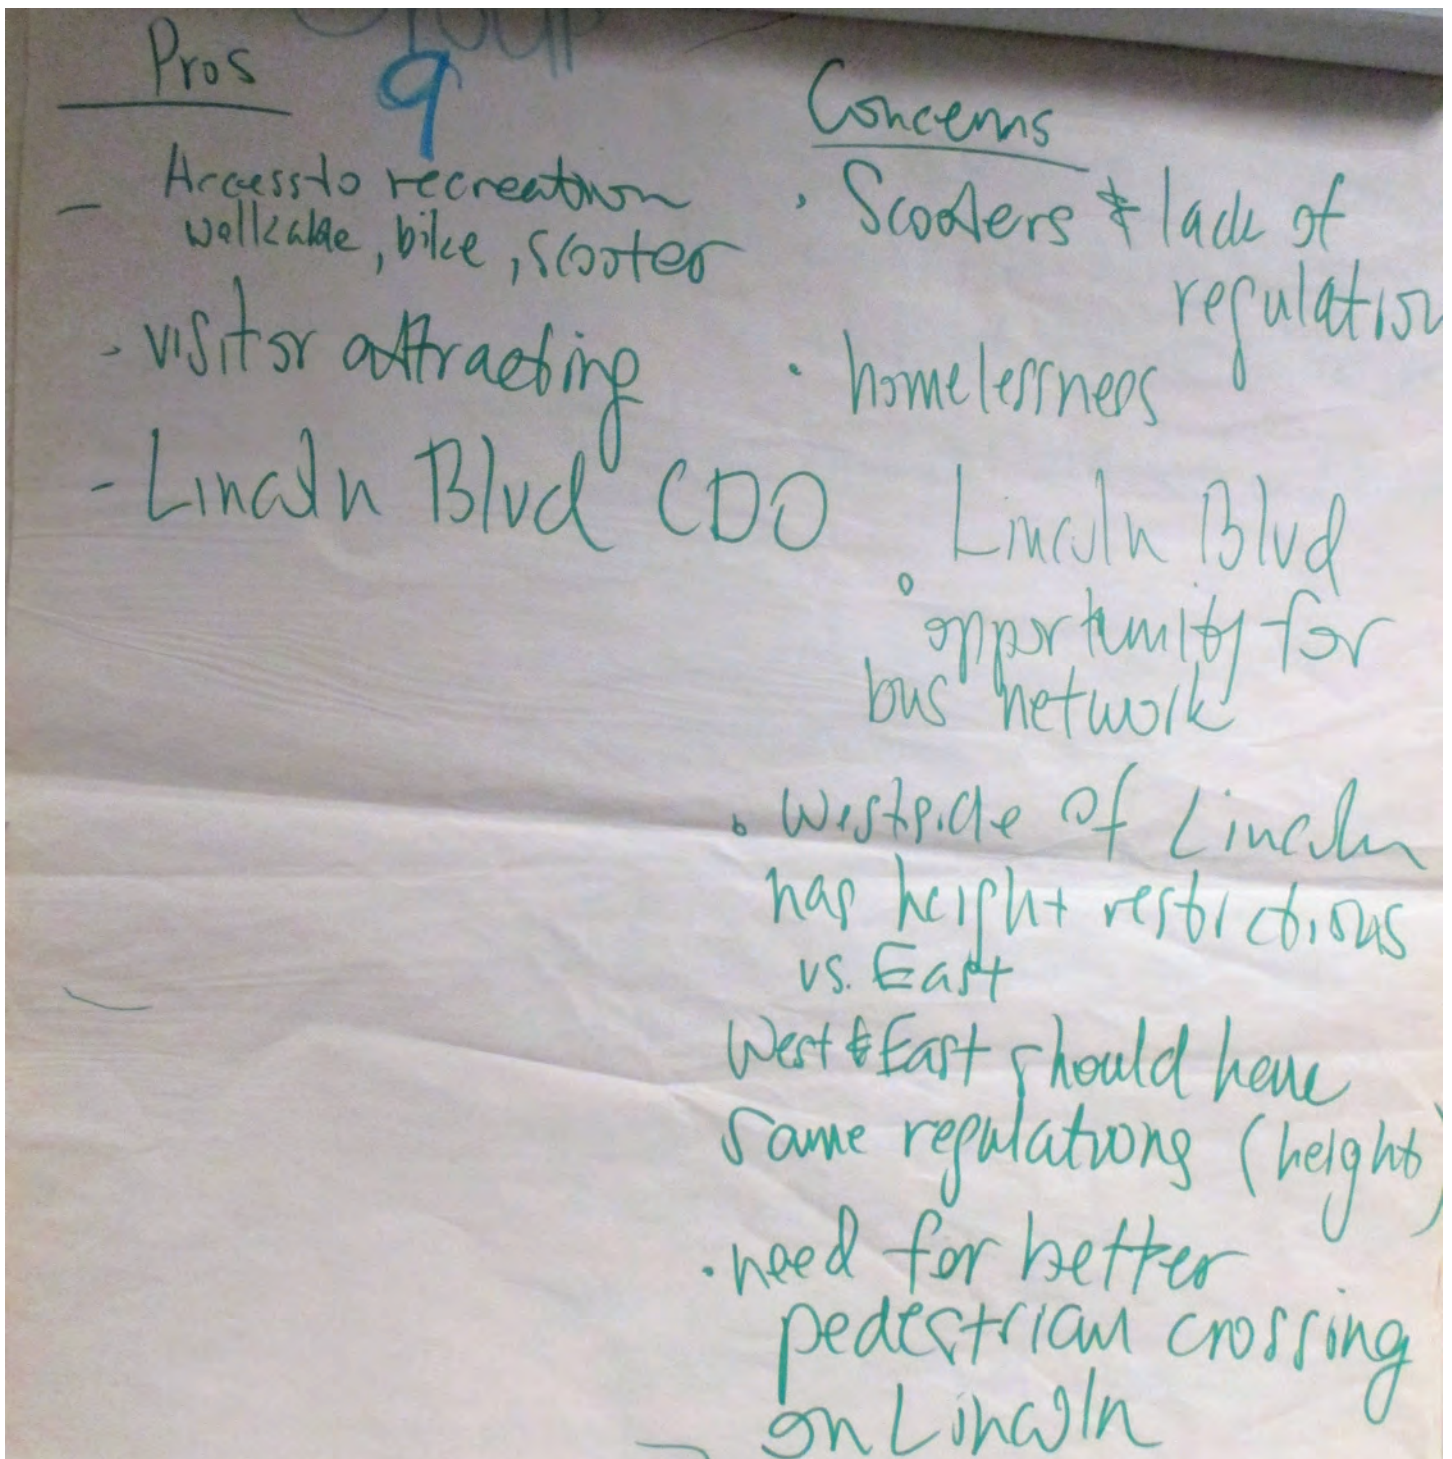 Group
9
Pros
- Access to recreation
walkable, bike, scooter
- visitor attracting
- Lincoln Blvd CDO
Concerns
· Scooters & lack of
regulation
· homelessness
Lincoln Blvd
· opportunity for
bus network
· Westside of Lincoln
has height restrictions
vs. East
West & East should have
same regulations (height)
· need for better
pedestrian crossing
on Lincoln